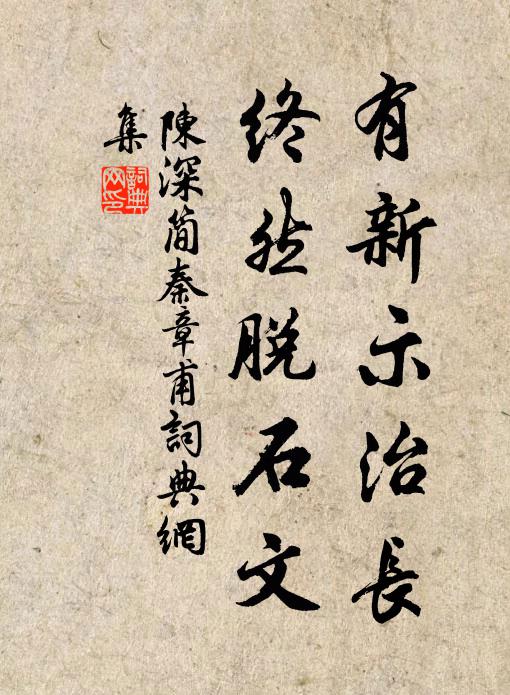 有新示治長
終然脱石文
陳深簡秦章甫詞典網
集
詞典
网印